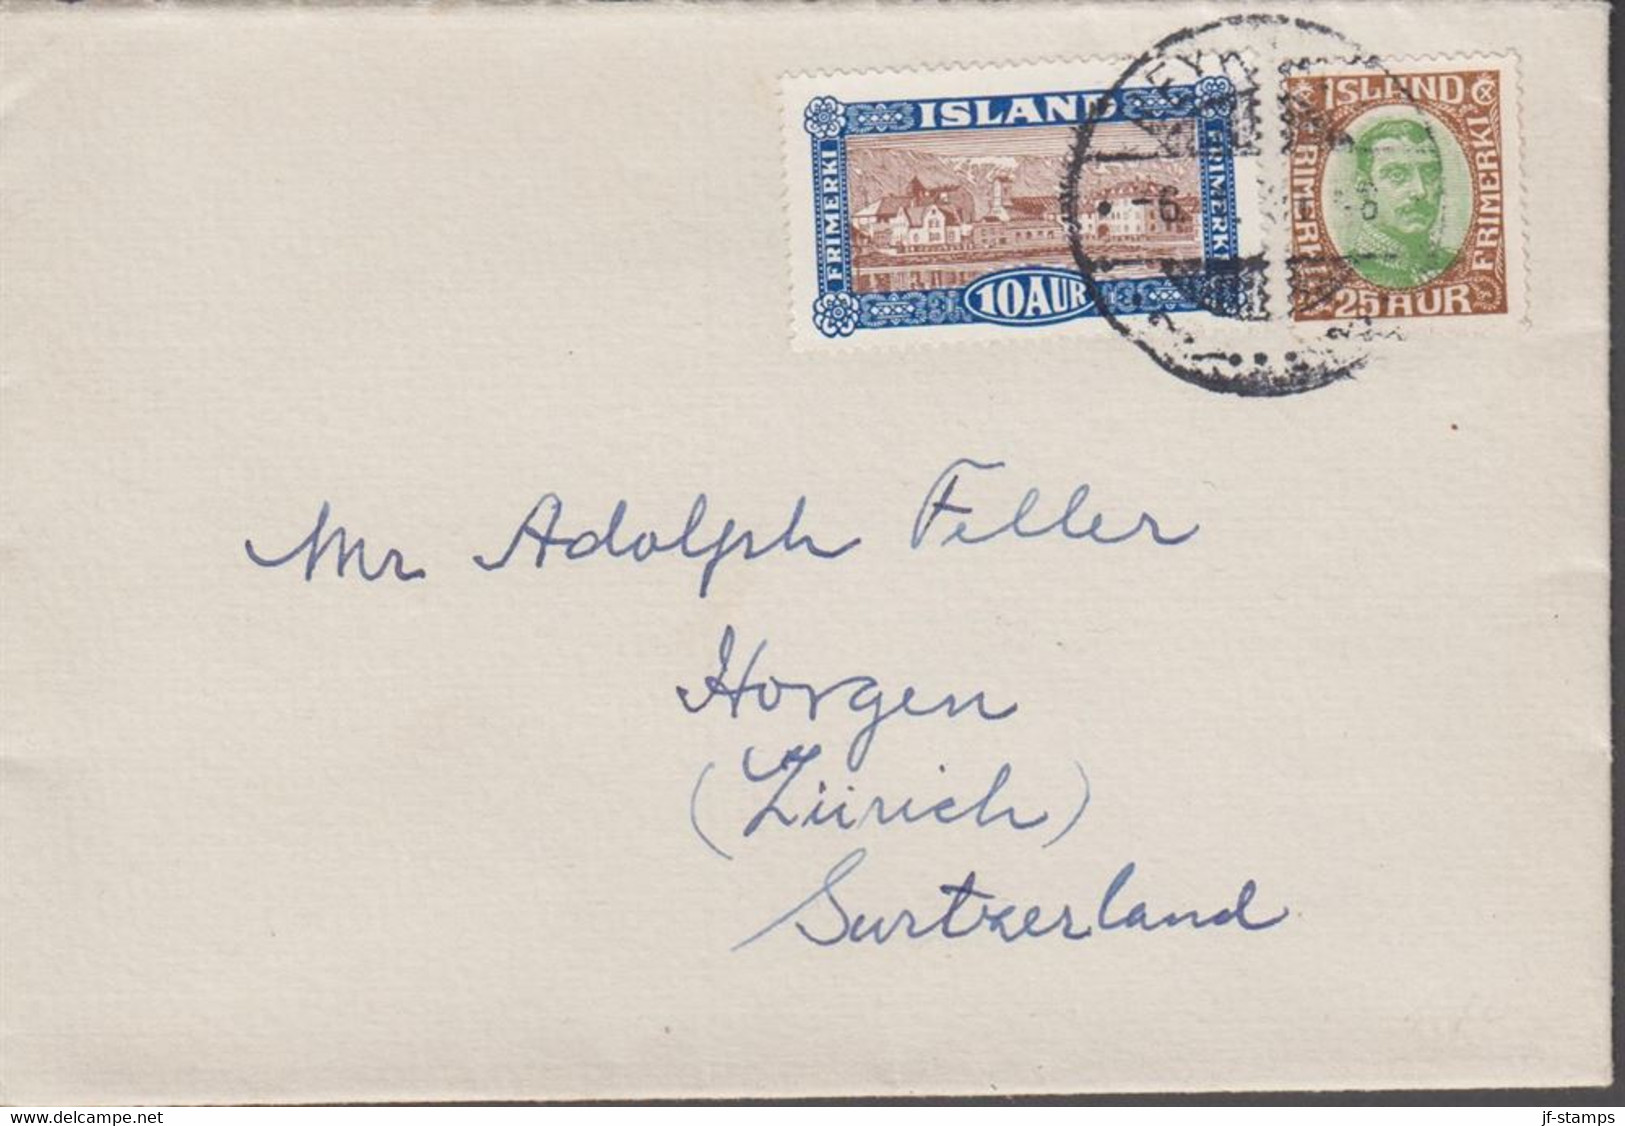 ISLAND
FRIMERKI
FRIMERKI
10 AUR
ISLAND
FRIMERKI
FRIMERKI
25 AUR
-6.
Mr Adolph Feller
Horgen
(Zürich)
Switzerland
www.delcampe.net
jf-stamps